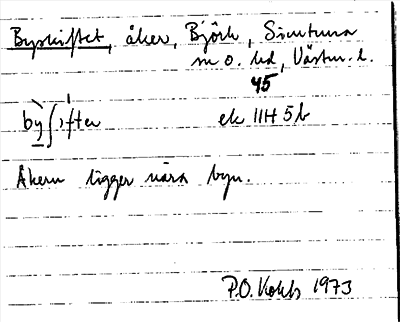 Byskiftet, åker, Björk, Simtuna
sn o. hd, Västm. l.
45
by ʃifter
ek 11H 5b
Åkern ligger nära byn.
P.O. 1973